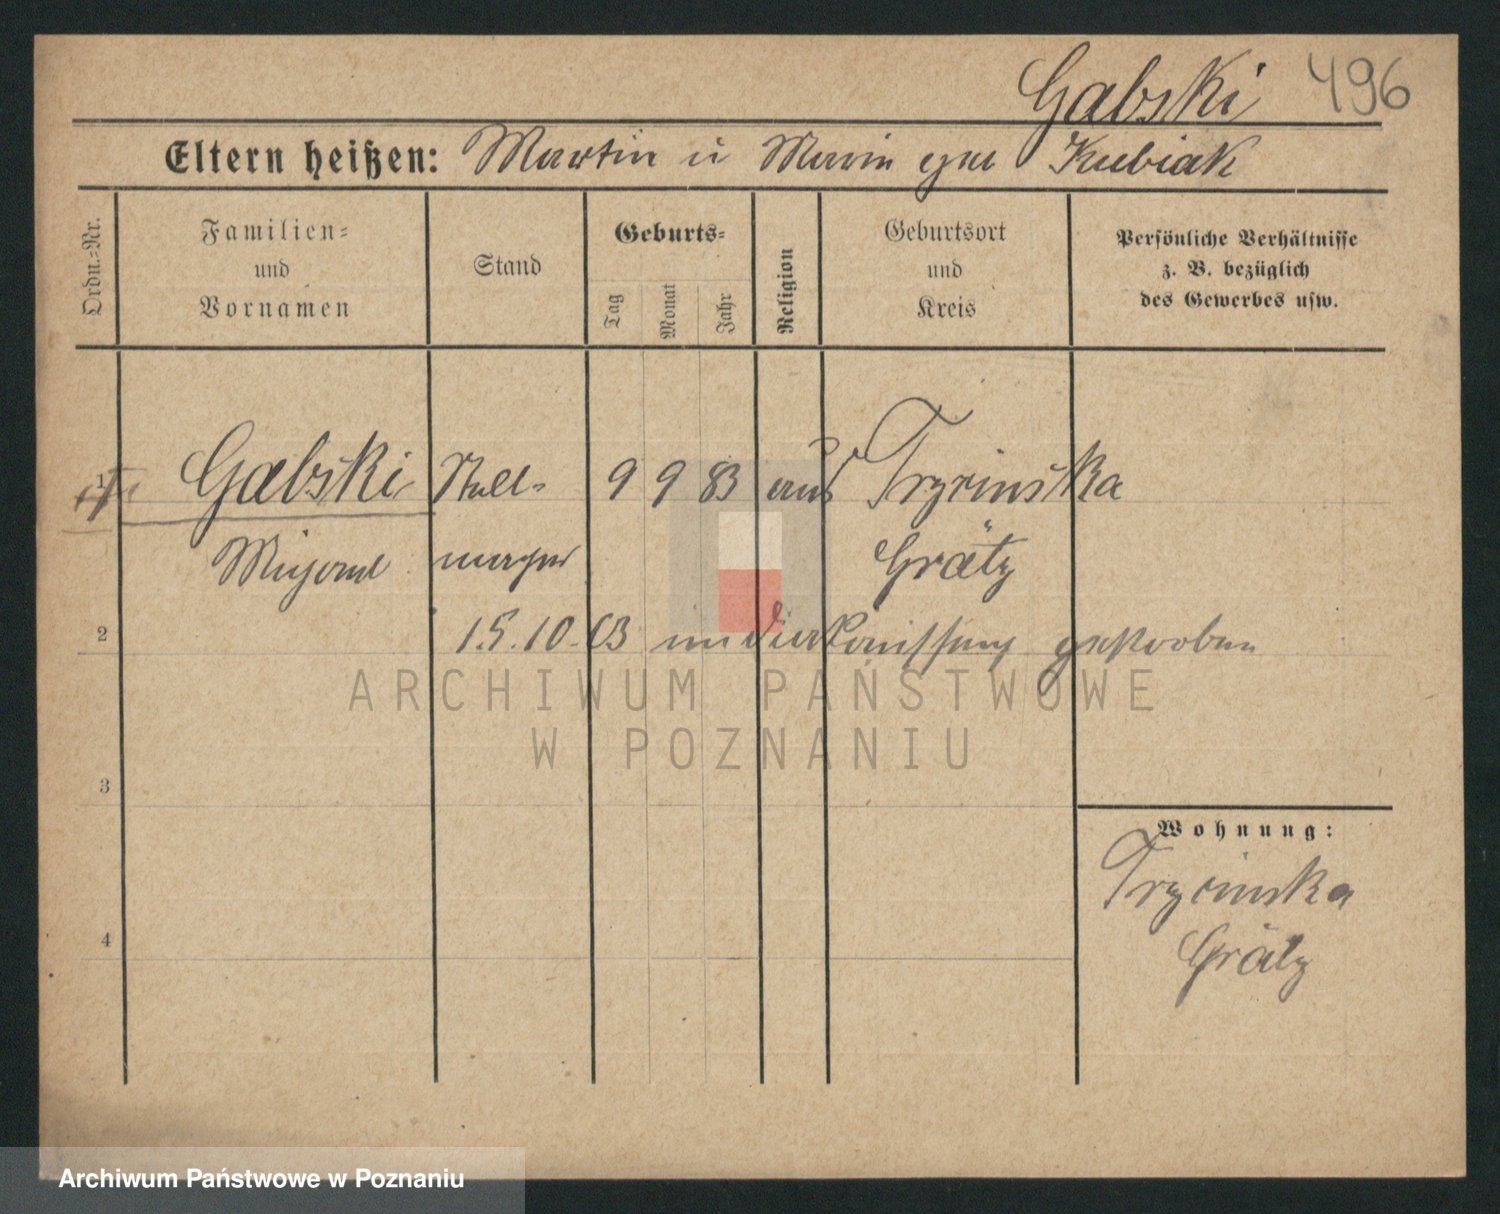 Gabski 496
Eltern heißen: Martin u Marie geb Kubiak
Ordn.-Nr.
Familien-
und
Vornamen
Stand
Geburts-
Tag
Monat
Jahr
Religion
Geburtsort
und
Kreis
Persönliche Verhältnisse
z. B. bezüglich
des Gewerbes usw.
1 Gabski Stell- 9 9 83 aus Trzcinska
macher Grätz
2 15.10.03 im Diakonissen gestorben
3
4
Wohnung:
Trzcinska
Grätz
ARCHIWUM PAŃSTWOWE
W POZNANIU
Archiwum Państwowe w Poznaniu